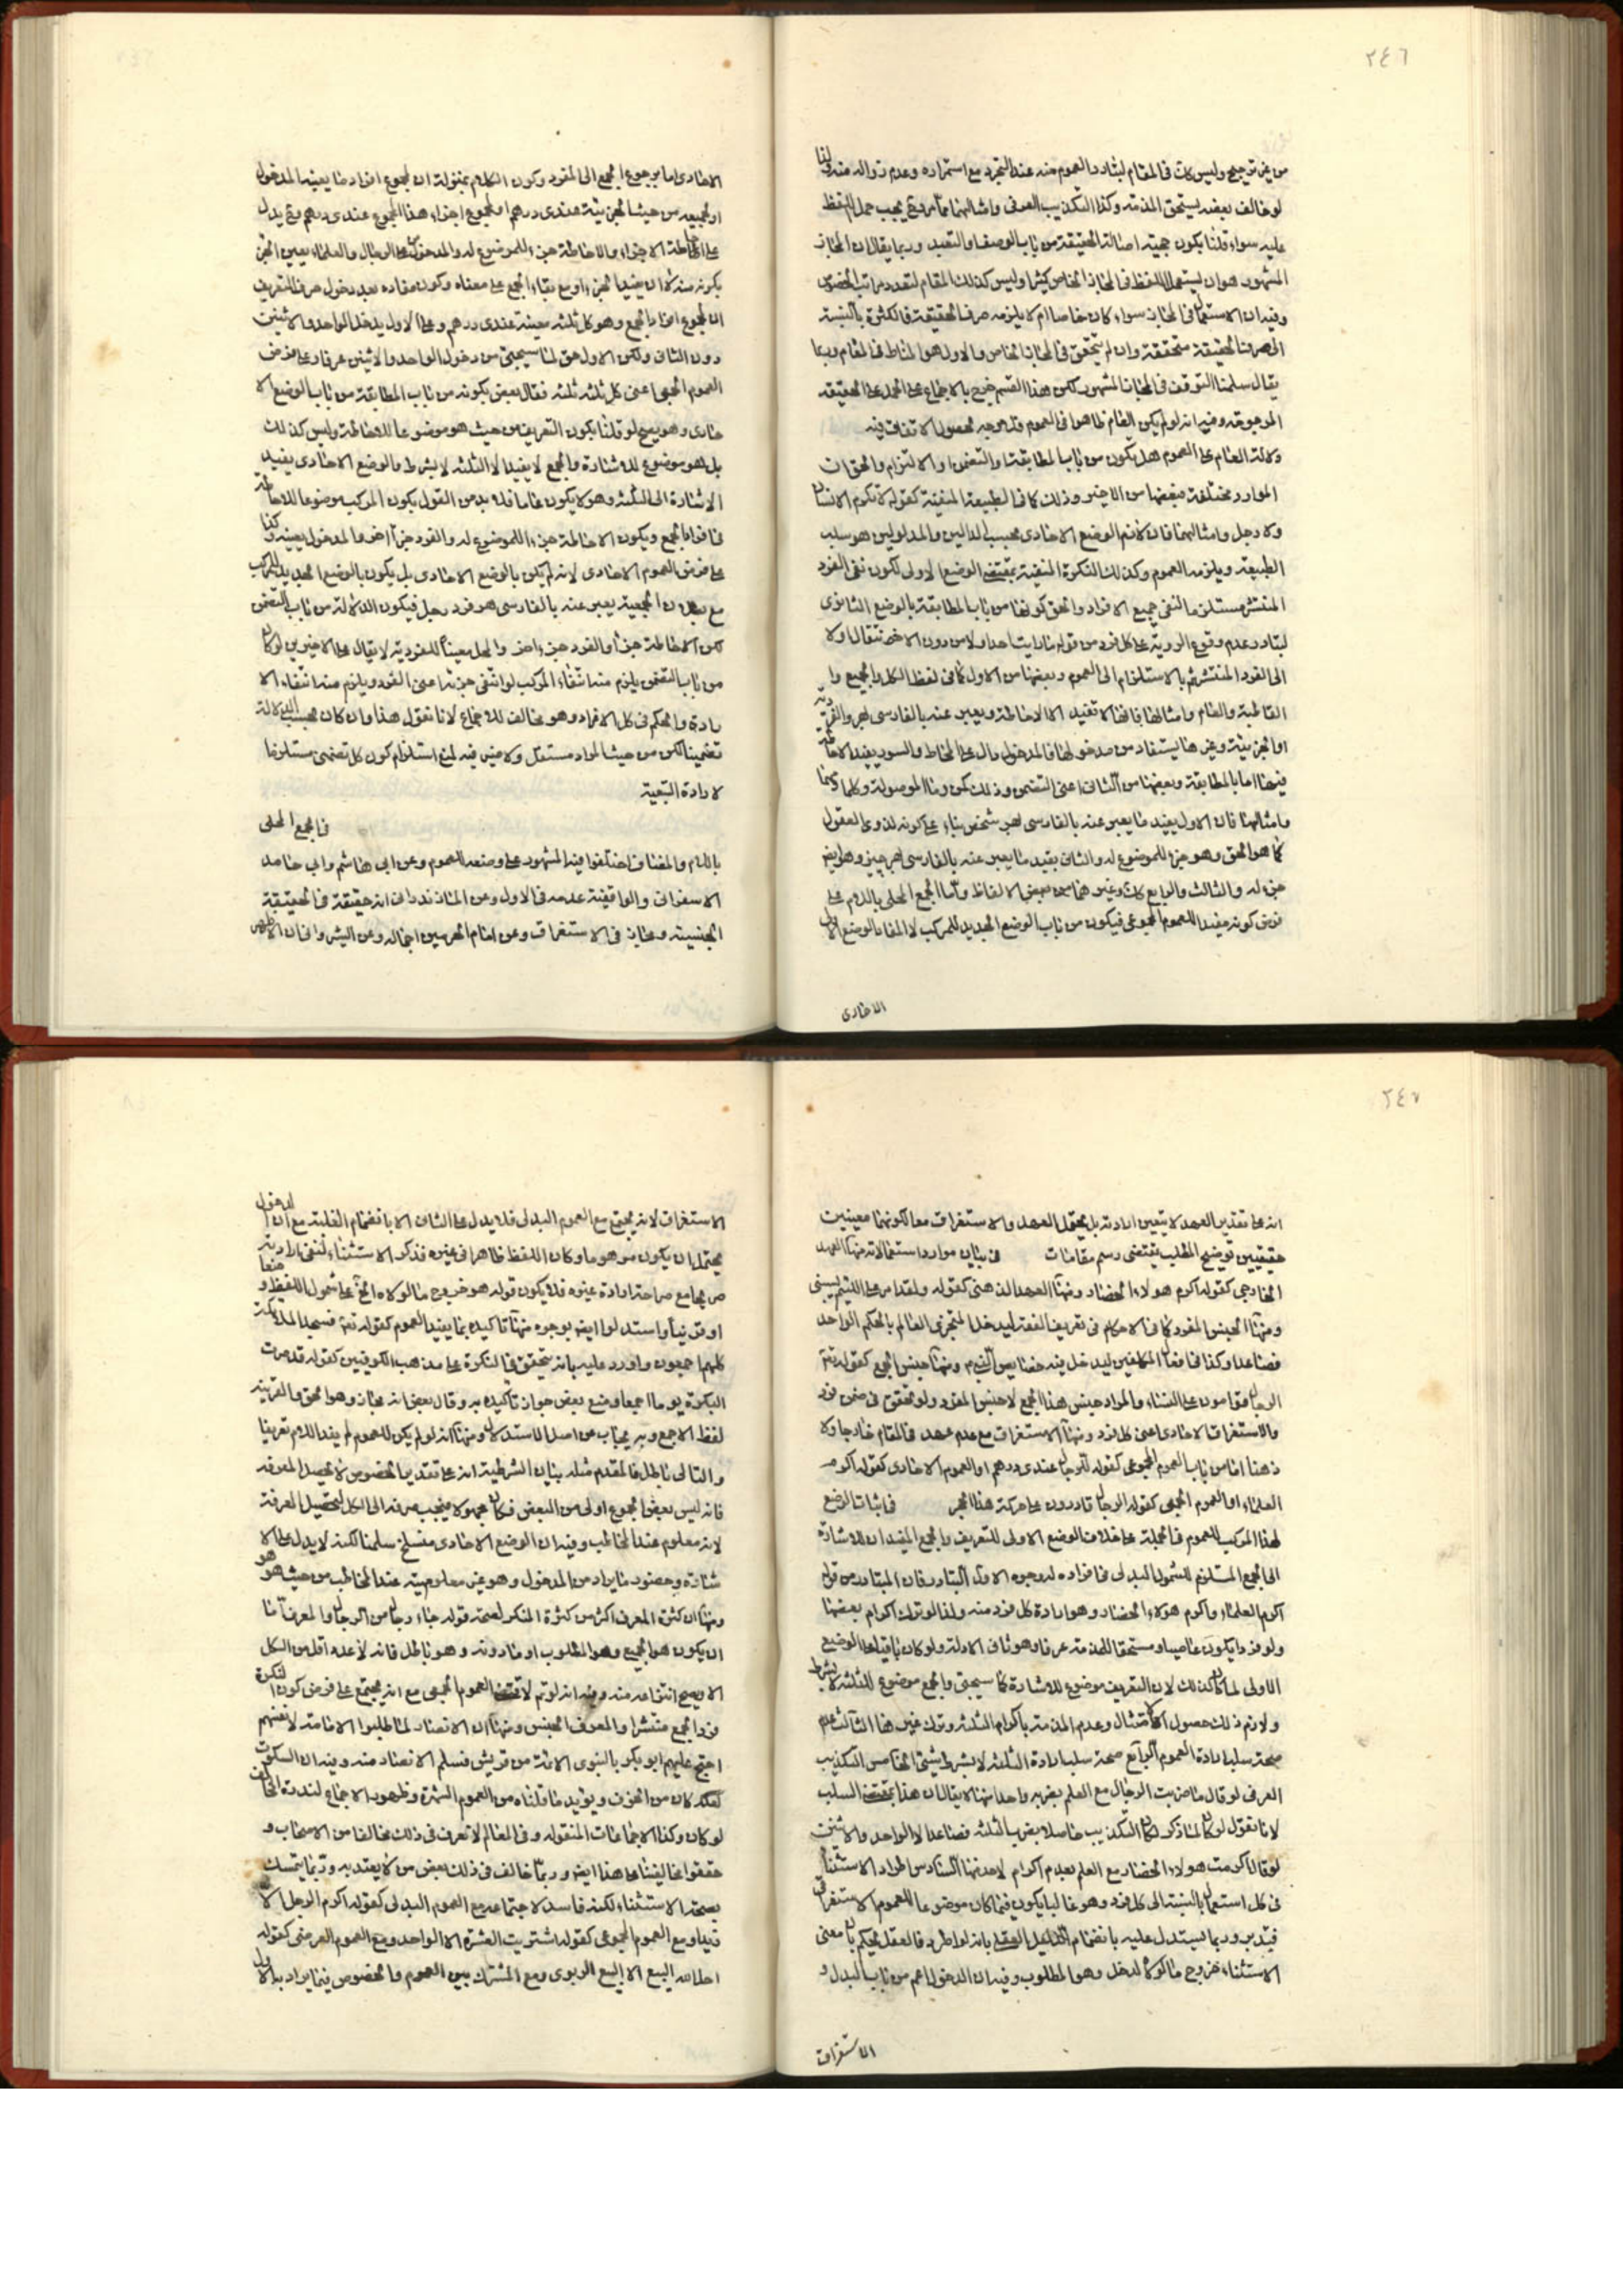 ٢٤٦
من غير ترجيح وليس كك فى المقام لتبادر العموم منه عند التجرد مع استمراره وعدم زواله منه ولذا
لو خالف بعضه يستحق المذمة وكذا التكذيب العرفى وامثالهما مما مر وح يجب حمل اللفظ
عليه سواء قلنا بكون حجية اصالة الحقيقة من باب الوصف او التعبد وربما يقال ان المجاز
المشهور هو ان يستعمل اللفظ فى المجاز الخاص كثيرا وليس كذلك المقام لتعدد مراتب الخصوص
وفيه ان الاستعمال فى المجاز سواء كان خاصا ام لا يلزمه صرف الحقيقة فالكثرة بالنسبة
الى صرف الحقيقة متحققة وان لم يتحقق فى المجاز الخاص والاول هو المناط فى المقام وربما
يقال سلمنا التوقف فى المجاز المشهور لكن هذا القسم خرج بالاجماع على الحمل على الحقيقة
المرجوحة وفيه انه لو لم يكن العام ظاهرا فى العموم فلا وجه لحصول الاتفاق فيه
دلالة العام على العموم هل يكون من باب المطابقة او التضمن او الالتزام والحق ان
الموارد مختلفة فبعضها من الاخير وذلك كما فى الطبيعة المنفية كقوله لا تكرم الانسان
ولا رجل وامثالهما فان لازم الوضع الاحادى بحسب الدالين والمدلولين هو سلب
الطبيعة ويلزمه العموم وكذلك النكرة المنفية بمقتضى الوضع الاولى لكون نفى الفرد
المنتشر مستلزما لنفى جميع الافراد والحق كونها من باب المطابقة بالوضع الثانوى
لتبادر عدم وقوع الروية على كل فرد من قوله ما رايت احدا ولا من دون الاخر تنتقالا ولا
الى الفرد المنتشر ثم بالاستلزام الى العموم وبعضها من الاول كما فى لفظ الكل والجميع وا
القاطبة والعام وامثالها فانها لا تفيد الا الاحاطة ويعبر عنه بالفارسى بهر والفردية
او الجزئية وغيرها يستفاد من مدخولها فالمدخول دال على المحاط والسور يفيد الاحاطة
فيها اما بالمطابقة وبعضها من الثانى اعنى التضمن وذلك كمن وما الموصولة وكلما وكيفما
وامثالهما فان الاول يفيد ما يعبر عنه بالفارسى بهر شخص بناء على كونه لذوى العقول
كما هو الحق وهو جزء للموضوع له والثانى يفيد ما يعبر عنه بالفارسى بهر چيز وهو ايضا
جزء له والثالث والرابع كك وغيرهما من بعض الالفاظ واما الجمع المحلى باللام على
فرض كونه مفيدا للعموم المجموعى فيكون من باب الوضع الجديد للمركب لا المفاد بالوضع الاول
الاحادى
الاحادى اما برجوع الجمع الى المفرد وكون الكلام بمنزلة ان مجموع افراد ما يعينه المدخول
او لجميعه من حيث الجزئية عندى درهم او مجموع اجزاء هذا المجموع عندى درهم وح يدل
على احاطة الاجزاء والاحاطة جزء للموضوع له والمدخول كالرجال والعلماء يعين الجزء
بكونه منه لا ان يفيد الجزء او مع بقاء الجمع على معناه وكون مفاده بعد دخول حرف التعريف
ان مجموع افراد الجمع وهو كل ثلثه معينة عندى درهم وعلى الاول يدخل الواحد والاثنين
دون الثانى ولكن الاول حق لما سيجئ من دخول الواحد والاثنين عرفا وعلى فرض
العموم الجمعى اعنى كل ثلثه ثلثه فقال بعض بكونه من باب المطابقة من باب الوضع الا
حادى وهو يصح لو قلنا بكون التعريف من حيث هو موضوعا للاحاطة وليس كذلك
بل هو موضوع للاشارة والجمع لا يفيد الا الثلثة لا بشرط والوضع الاحادى يفيد
الاشارة الى الثلثه وهو لا يكون عاما فلا بد من القول بكون المركب موضوعا للاحاطة
فى افراد الجمع ويكون الاحاطة جزء للموضوع له والفرد جزء اخر والمدخول يعينه وكذا
على فرض العموم الاحادى لانه لم يكن بالوضع الاحادى بل يكون بالوضع الجديد للمركب
مع بطلان الجمعية يعبر عنه بالفارسى هر فرد رجل فيكون الدلالة من باب التضمن
لكن الاحاطة جزء والفرد جزء اخر والرجل معينا للفردية لا يقال على الاخيرين لو كان
من باب التضمن يلزم منه انتفاء المركب لو انتفى جزئه اعنى الفرد ويلزم منه انتفاء الا
رادة والحكم فى كل الافراد وهو مخالف للاجماع لانا نقول هذا وان كان بحسب الدلالة
تضمينا لكن من حيث المراد مستقل ولا ضير فيه لمنع استلزام كون كل تضمنى مستلزما
لارادة التبعية
فى الجمع المحلى
باللام والمضاف اختلفوا فيه المشهور على وضعه للعموم وعن ابى هاشم وابى حامد
الاسفرانى والواقفية عدمه فى الاول وعن المازندرانى انه حقيقة فى الحقيقة
الجنسية ومجاز فى الاستغراق وعن امام الحرمين اجماله وعن الشيروانى ان
٢٤٧
انه على تقدير العهد لا يتعين ارادته بل يحتمل العهد والاستغراق معا لكونهما معينيت
حقيقيين توضيح المطلب يقتضى رسم مقامات فى بيان موارد استعمالاته منها العهد
الخارجى كقوله اكرم هولاء الحضار ومنها العهد الذهنى كقوله ولقد امر على اللئيم يسبنى
ومنها الجنس المفرد كما فى الاحكام فى تعريف الفقه ليدخل المتجزى العالم بالحكم الواحد
فصاعدا وكذا فى افعال المكلفين ليدخل فيه خصايص النبى ص ومنها جنس الجمع كقوله تع
الرجال قوامون على النساء والمراد جنس هذا الجمع لا جنس المفرد ولو تحقق فى ضمن فرد
والاستغراق الاحادى اعنى كل فرد ومنها الاستغراق مع عدم عهد فى المقام خارجا ولا
ذهنا اما من باب العموم المجموعى كقوله للرجال عندى درهم او العموم الاحادى كقوله اكرم
العلماء او العموم الجمعى كقوله الرجال قادرون على حركة هذا الحجر فى اثبات الوضع
لهذا المركب للعموم فى الجملة على خلاف الوضع الاولى للتعريف والجمع المفيد ان للاشارة
الى الجمع المستلزم للشمول البدلى فى افراده لوجوه الاول التبادر فان المتبادر من قوله
اكرم العلماء واكرم هولاء الحضار وهو ارادة كل فرد منه ولذا لو ترك اكرام بعضها
ولو فردا يكون عاصيا ومستحقا للمذمة عرفا وهو ثانى الادلة ولو كان باقيا على الوضع
الاولى لما كان كذلك لان التعريف موضوع للاشارة كما سيجئ والجمع موضوع للثلثة لا بشرط
ولازم ذلك حصول الامتثال وعدم المذمة باكرام الثلثه وترك غيرها الثالث عدم
صحة سلب ارادة العموم الرابع صحة سلب ارادة الثلثه لا بشرط شئ الخامس التكذيب
العرفى لو قال ما ضربت الرجال مع العلم بضربه واحدا منها لا يقال ان هذا بمقتضى السلب
لانا نقول لو كان لما ذكر لكان التكذيب حاصلا بضرب الثلثه فصاعدا لا الواحد والاثنين
لو قال اكرمت هولاء الحضار مع العلم بعدم اكرام لاحد منها السادس اطراد الاستثناء
فى كل استعمال بالنسبة الى كل فرد وهو غالبا يكون فيما كان موضوعا للعموم الاستغراقى
فتدبر وربما يستدل عليه بانضمام الدليل العقلى بانه لو اطرد فالعقل يحكم بان معنى
الاستثناء خروج ما لولاه لدخل وهو المطلوب وفيه ان الدخول اعم من باب البدل و
الاستغراق
الاستغراق لانه يجتمع مع العموم البدلى فلا يدل على الثانى الا بانضمام الغلبة مع ان الدخول
يحتمل ان يكون موهوما وكان اللفظ ظاهرا فى غيره فذكر الاستثناء لنفى ارادته
صريحا مع صراحة ارادة غيره فلا يكون قوله هو خروج ما لولاه الخ على شمول اللفظ وضعا
او قرينة واستدلوا ايضا بوجوه منها تاكيده بما يفيد العموم كقوله تع فسجد الملائكة
كلهم اجمعون واورد عليه بانه يتحقق فى النكرة على مذهب الكوفيين كقوله قد صرت
البكرة يوما اجمعا ومنع بعض جواز تاكيده به وقال بعض انه مجاز وهو الحق والقرينة
لفظ الاجمع وبه يجاب عن اصل الاستدلال ومنها انه لو لم يكن للعموم لم يفد اللام تعريفا
والتالى باطل فالمقدم مثله بيان الشرطية انه على تقدير الخصوص لا يحصل المعرفة
فانه ليس بعض المجموع اولى من البعض فكان مجهولا فيجب صرفه الى الكل لتحصيل المعرفة
لانه معلوم عند المخاطب وفيه ان الوضع الاحادى منسلخ سلمنا لكنه لا يدل على الا
شارة وحضور ما يراد من المدخول وهو غير معلوميته عند المخاطب من حيث هو هو
ومنها ان كثرة المعرف اكثر من كثرة المنكر لصحة قوله جاء رجال من الرجال والمعرف اما
ان يكون هو الجميع وهو المطلوب او مادونه وهو باطل فانه لا عدد اقل من الكل
الا ويصح انتزاعه منه وفيه انه لو تم لاقتضى العموم الجمعى مع انه يجتمع على فرض كون النكرة
فردا لجمع منتشرا والمعرف الجنس ومنها ان الانصار لما طلبوا الامامة لانفسهم
احتج عليهم ابو بكر بالنبوى الائمة من قريش فسلم الانصار منه وفيه ان السكوت
لعله كان من الخوف ويؤيد ما قلناه من العموم الشهرة وظهور الاجماع لندرة المخالف
لو كان وكذا الاجماعات المنقوله وفى المعالم لا نعرف فى ذلك مخالفا من الاصحاب و
حققوا مخالفينا على هذا ايضا وربما خالف فى ذلك بعض من لا يعتد به وربما يتمسك
بصحة الاستثناء لكنه فاسد لاجتماعه مع العموم البدلى كقوله اكرم الرجل الا
زيدا ومع العموم المجموعى كقوله اشتريت العشرة الا الواحد ومع العموم العرضى كقوله
احل الله البيع الا البيع الربوى ومع المشترك بين العموم والخصوص فيما يراد به الاول